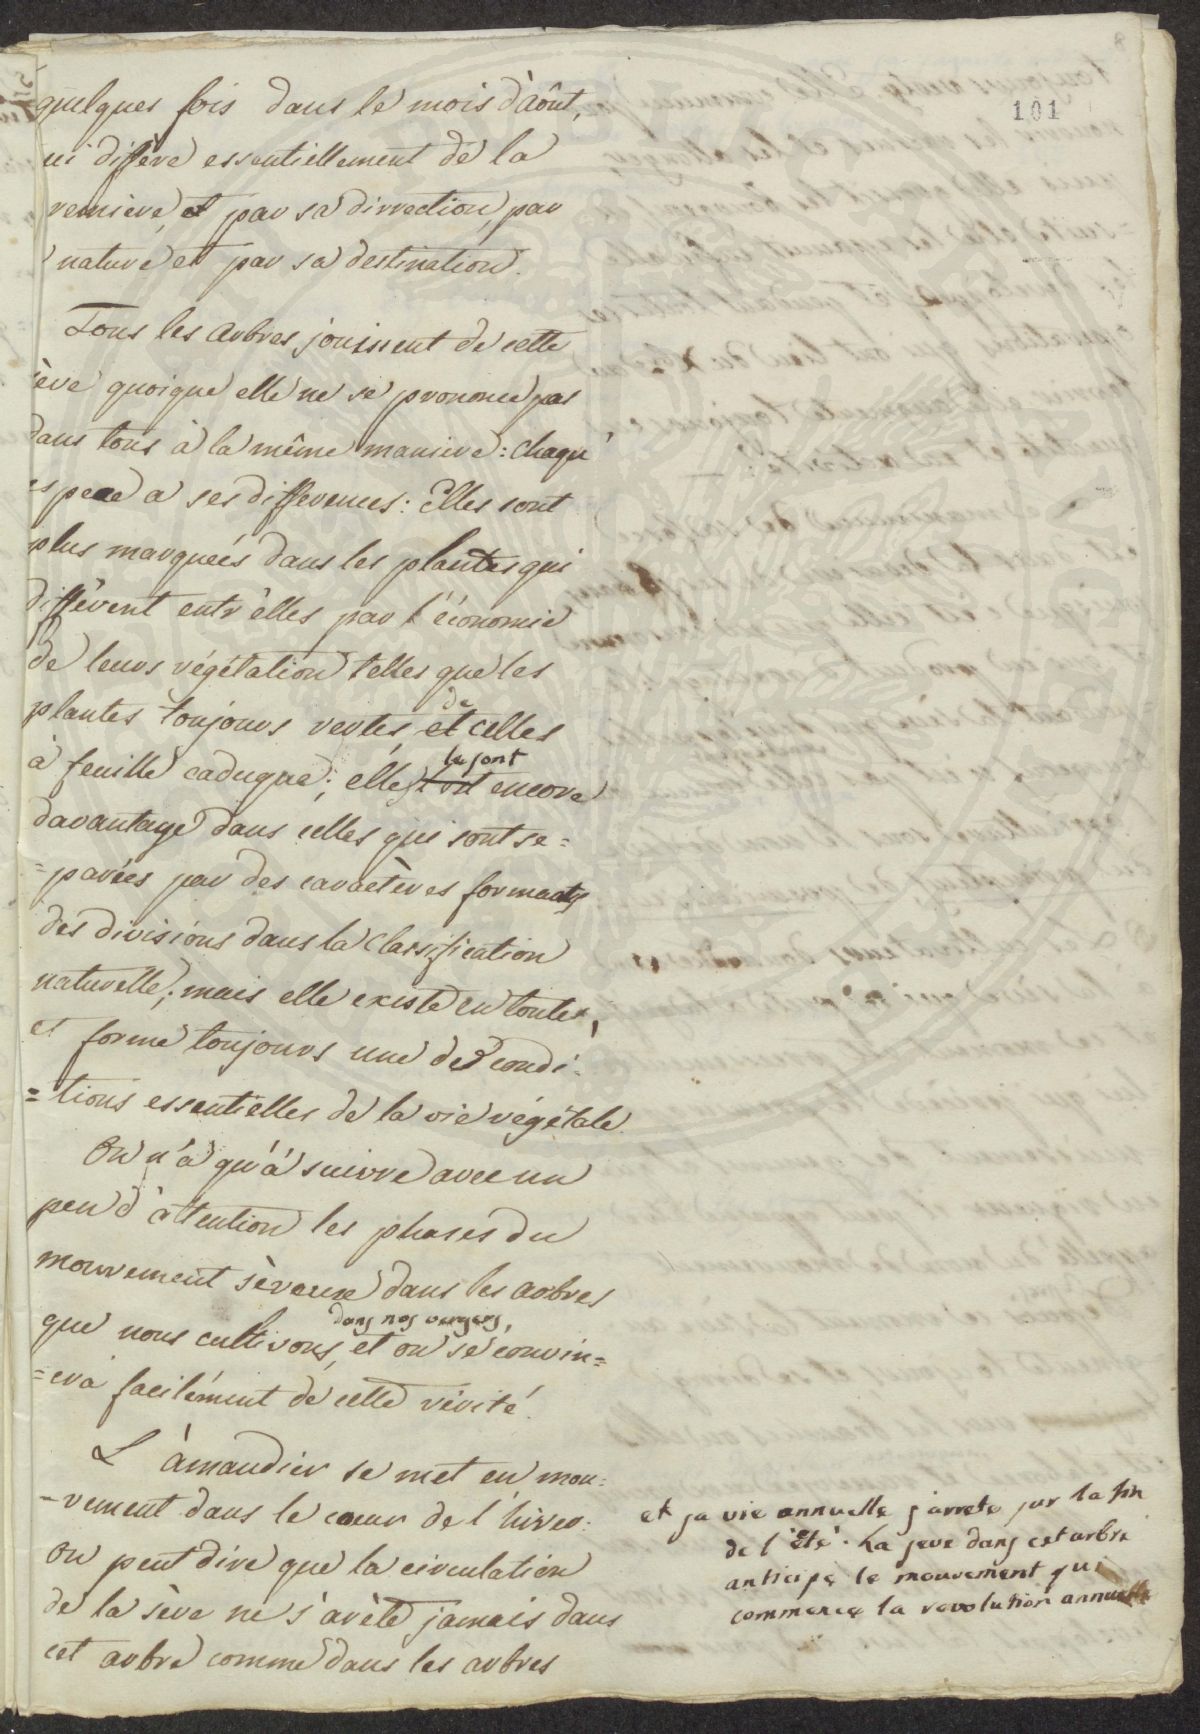 101
quelques fois dans le mois d'àôut,
ui diffère essentiellement de la
remiere, et par sa dirrection, par
nature et par sa destination.
Tous les arbres jouissent de cette
ève quoique elle ne se prononce pas
dans tous à la même maniere : chaque
espece a ses differences : Elles sont
plus marqueés dans les plantes qui
diffèrent entr'elles par l'économie
de leurs végétation telles que les
plantes toujours vertes et de celles
à feuille caduque ; elles le sont encore
davantage dans celles qui sont se=
=parées par des caractères formants
des divisions dans la classification
naturelle ; mais elle existe en toutes,
et forme toujours une des condi=
=tions essentielles de la vie végétale.
On n'a qu'à suivre avec un
peu d'attention les phases du
mouvement sèveux dans les arbres
que nous cultivons dans nos vergers, et on se convin=
=cra facilément de cette vérité.
L'amandier se met en mou=
=vement dans le cœur de l'hiver.
On peut dire que la circulation
de la sève ne s'arète jamais dans
cet arbre comme dans les arbres
et sa vie annuelle s'arrete sur la fin
de l'été. La seve dans cet arbre
anticipe le mouvement qui
commence la revolution annuelle